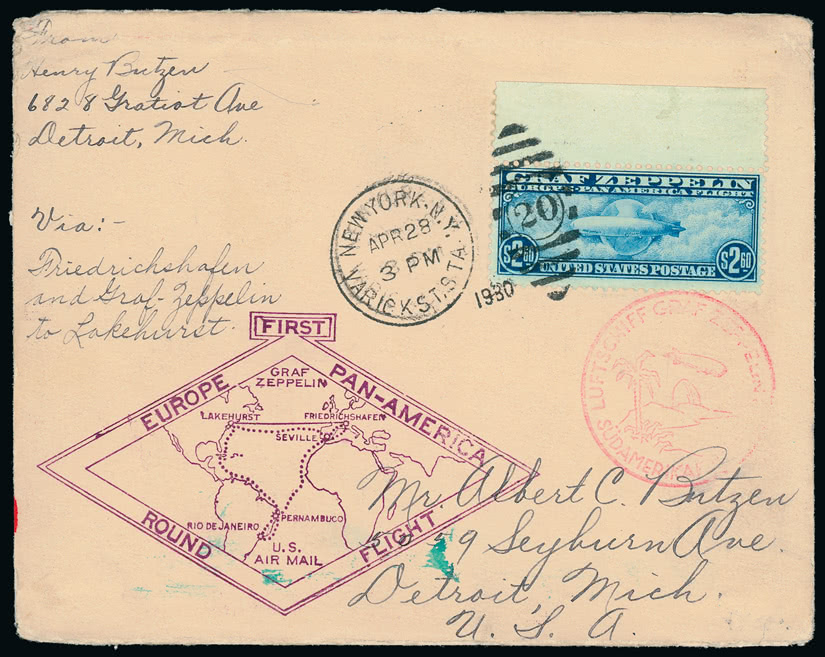 From
Henry Butzen
6828 Gratiot Ave
Detroit, Mich.
Via:-
Friedrichshafen
and Graf-Zeppelin
to Lakehurst.
NEW YORK, N.Y.
APR 28
3 PM
VARICK ST. STA.
1930
20
GRAF ZEPPELIN
EUROPE-PAN AMERICA FLIGHT
$2.60 $2.60
UNITED STATES POSTAGE
LUFTSCHIFF GRAF ZEPPELIN
SÜDAMERIKAFAHRT
FIRST
EUROPE PAN-AMERICA
GRAF
ZEPPELIN
LAKEHURST FRIEDRICHSHAFEN
SEVILLE
RIO DE JANEIRO PERNAMBUCO
U.S.
AIR MAIL
ROUND FLIGHT
Mr. Albert C. Butzen
Seyburn Ave.
Detroit, Mich.
U. S. A.